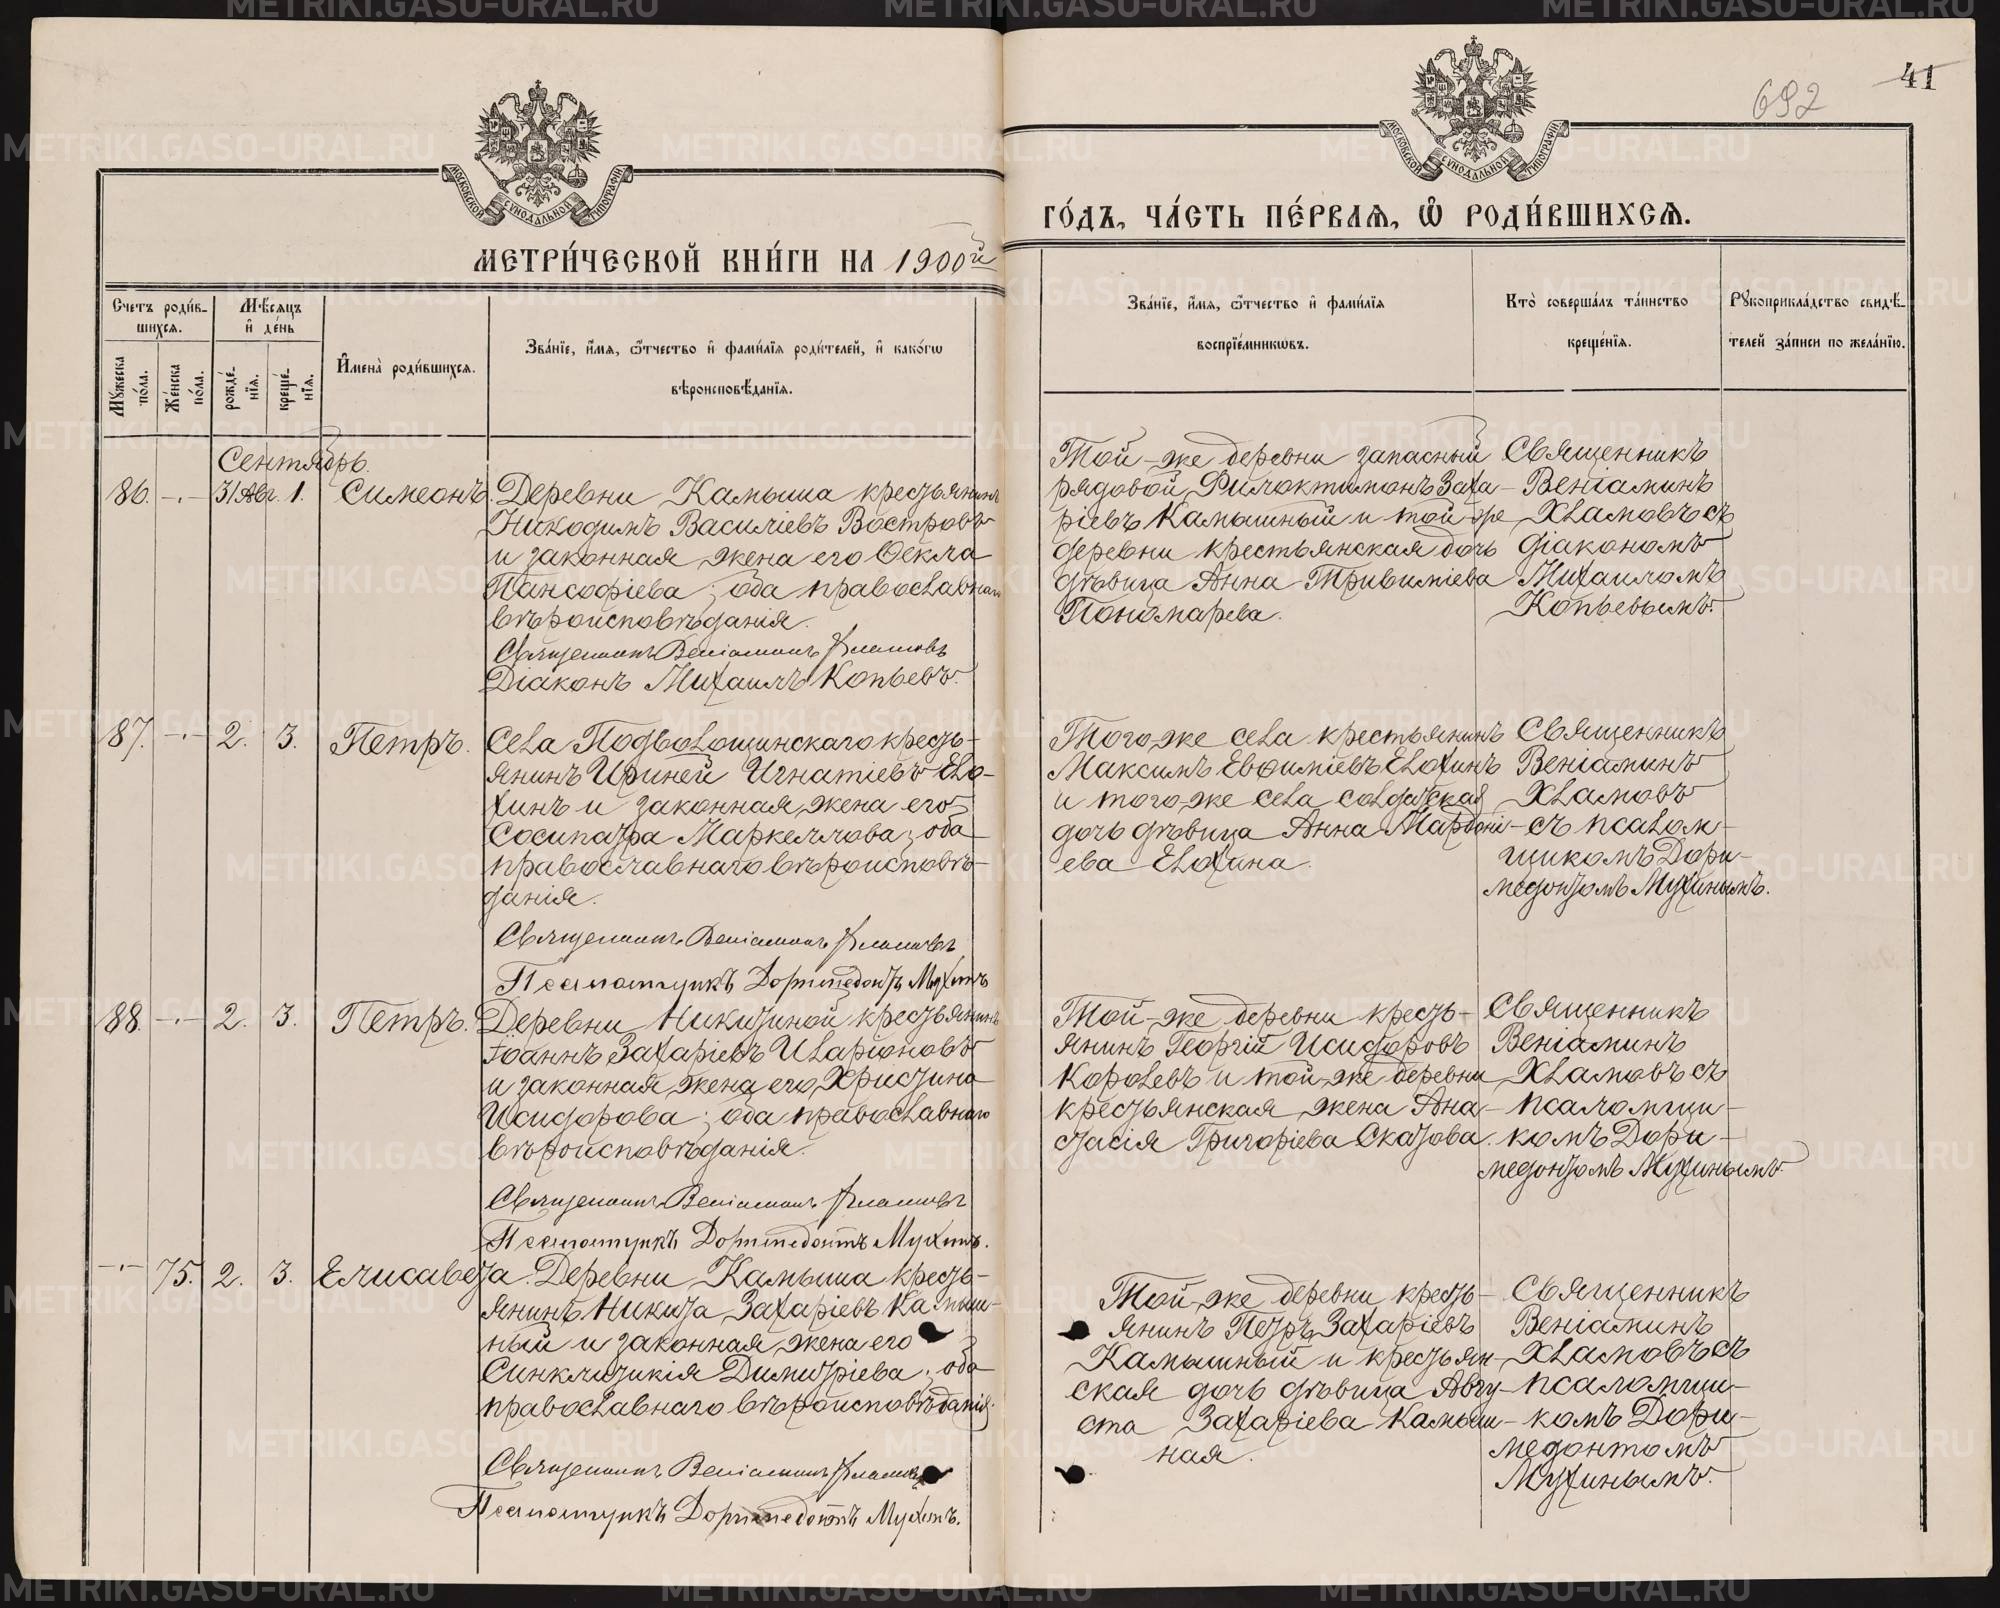 41
692
МОСКОВСКОЙ СУНОДАЛЬНОЙ ТИПОГРАФІИ
МОСКОВСКОЙ СУНОДАЛЬНОЙ ТИПОГРАФІИ
МЕТРИ́ЧЕСКОЙ КНИ́ГИ НА 1900й
ГО́ДЪ, ЧА́СТЬ ПЕ́РВАѦ, Ѽ РОДИ́ВШИХСѦ.
Счетъ роди́в-
шихсѧ.
Мꙋжеска по́ла.
Же́нска по́ла.
Мѣ́сяцъ
и҆ де́нь
рожде́нїѧ.
креще́нїѧ.
И҆мена̀ роди́вшихсѧ.
Зва́нїе, и҆́мѧ, ѻ҆́тчество и҆ фами́лїѧ роди́телей, и҆ како́гѡ
вѣроисповѣ́данїѧ.
Зва́нїе, и҆́мѧ, ѻ҆́тчество и҆ фами́лїѧ
воспрїе́мникѡвъ.
Кто̀ соверша́лъ та́инство
креще́нїѧ.
Рꙋкоприкла́дство свидѣ́-
телей за́писи по жела́нїю.
Сентябрь.
86. -.- 31 Авг. 1. Симеонъ.
Деревни Камыша крестьянинъ
Никодимъ Василіевъ Востровъ
и законная жена его Ѳекла
Пансофіева; оба православнаго
вѣроисповѣданія.
Священникъ Веніаминъ Хламовъ
Діаконъ Михаилъ Копьевъ.
Той-же деревни запасный
рядовой Филоктимонъ Заха-
ріевъ Камышный и той-же
деревни крестьянская дочь
дѣвица Анна Тривиліева
Пономарева.
Священникъ
Веніаминъ
Хламовъ съ
діакономъ
Михаиломъ
Копьевымъ.
87. -.- 2. 3. Петръ.
Села Подволошинскаго кресть-
янинъ Ириней Игнатіевъ Ело-
хинъ и законная жена его
Сосипатра Маркеллова; оба
православнаго вѣроисповѣ-
данія.
Священникъ Веніаминъ Хламовъ
Псаломщикъ Доримедонтъ Мухинъ
Того-же села крестьянинъ
Максимъ Евѳиміевъ Елохинъ
и того-же села солдатская
дочь дѣвица Анна Мардоні-
ева Елохина.
Священникъ
Веніаминъ
Хламовъ
съ псалом-
щикомъ Дори-
медонтомъ Мухинымъ.
88. -.- 2. 3. Петръ.
Деревни Никитиной крестьянинъ
Іоаннъ Захаріевъ Иларіоновъ
и законная жена его Христина
Исидорова; оба православнаго
вѣроисповѣданія.
Священникъ Веніаминъ Хламовъ
Псаломщикъ Доримедонтъ Мухинъ.
Той-же деревни кресть-
янинъ Георгій Исидоровъ
Королевъ и той-же деревни
крестьянская жена Ана-
стасія Григоріева Скатова.
Священникъ
Веніаминъ
Хламовъ съ
псаломщи-
комъ Дори-
медонтомъ Мухинымъ.
-.- 75. 2. 3. Елисавета.
Деревни Камыша кресть-
янинъ Никита Захаріевъ Камыш-
ный и законная жена его
Синклитикія Димитріева; оба
православнаго вѣроисповѣданія.
Священникъ Веніаминъ Хламовъ
Псаломщикъ Доримедонтъ Мухинъ.
Той-же деревни кресть-
янинъ Петръ Захаріевъ
Камышный и крестьян-
ская дочь дѣвица Авгу-
ста Захаріева Камыш-
ная.
Священникъ
Веніаминъ
Хламовъ съ
псаломщи-
комъ Дори-
медонтомъ
Мухинымъ.
METRIKI.GASO-URAL.RU